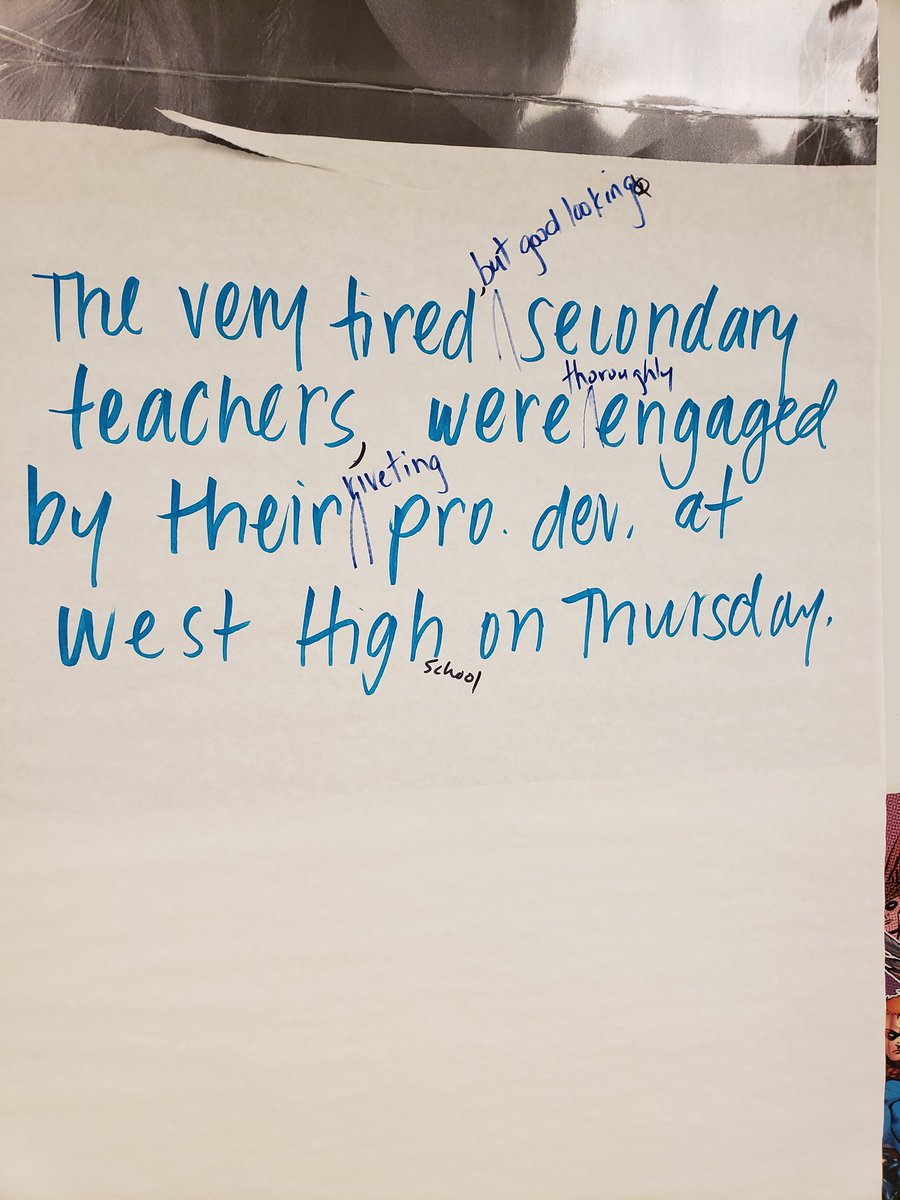 but good looking
The very tired, secondary
thoroughly
teachers, were engaged
riveting
by their pro. dev. at
West High on Thursday.
school